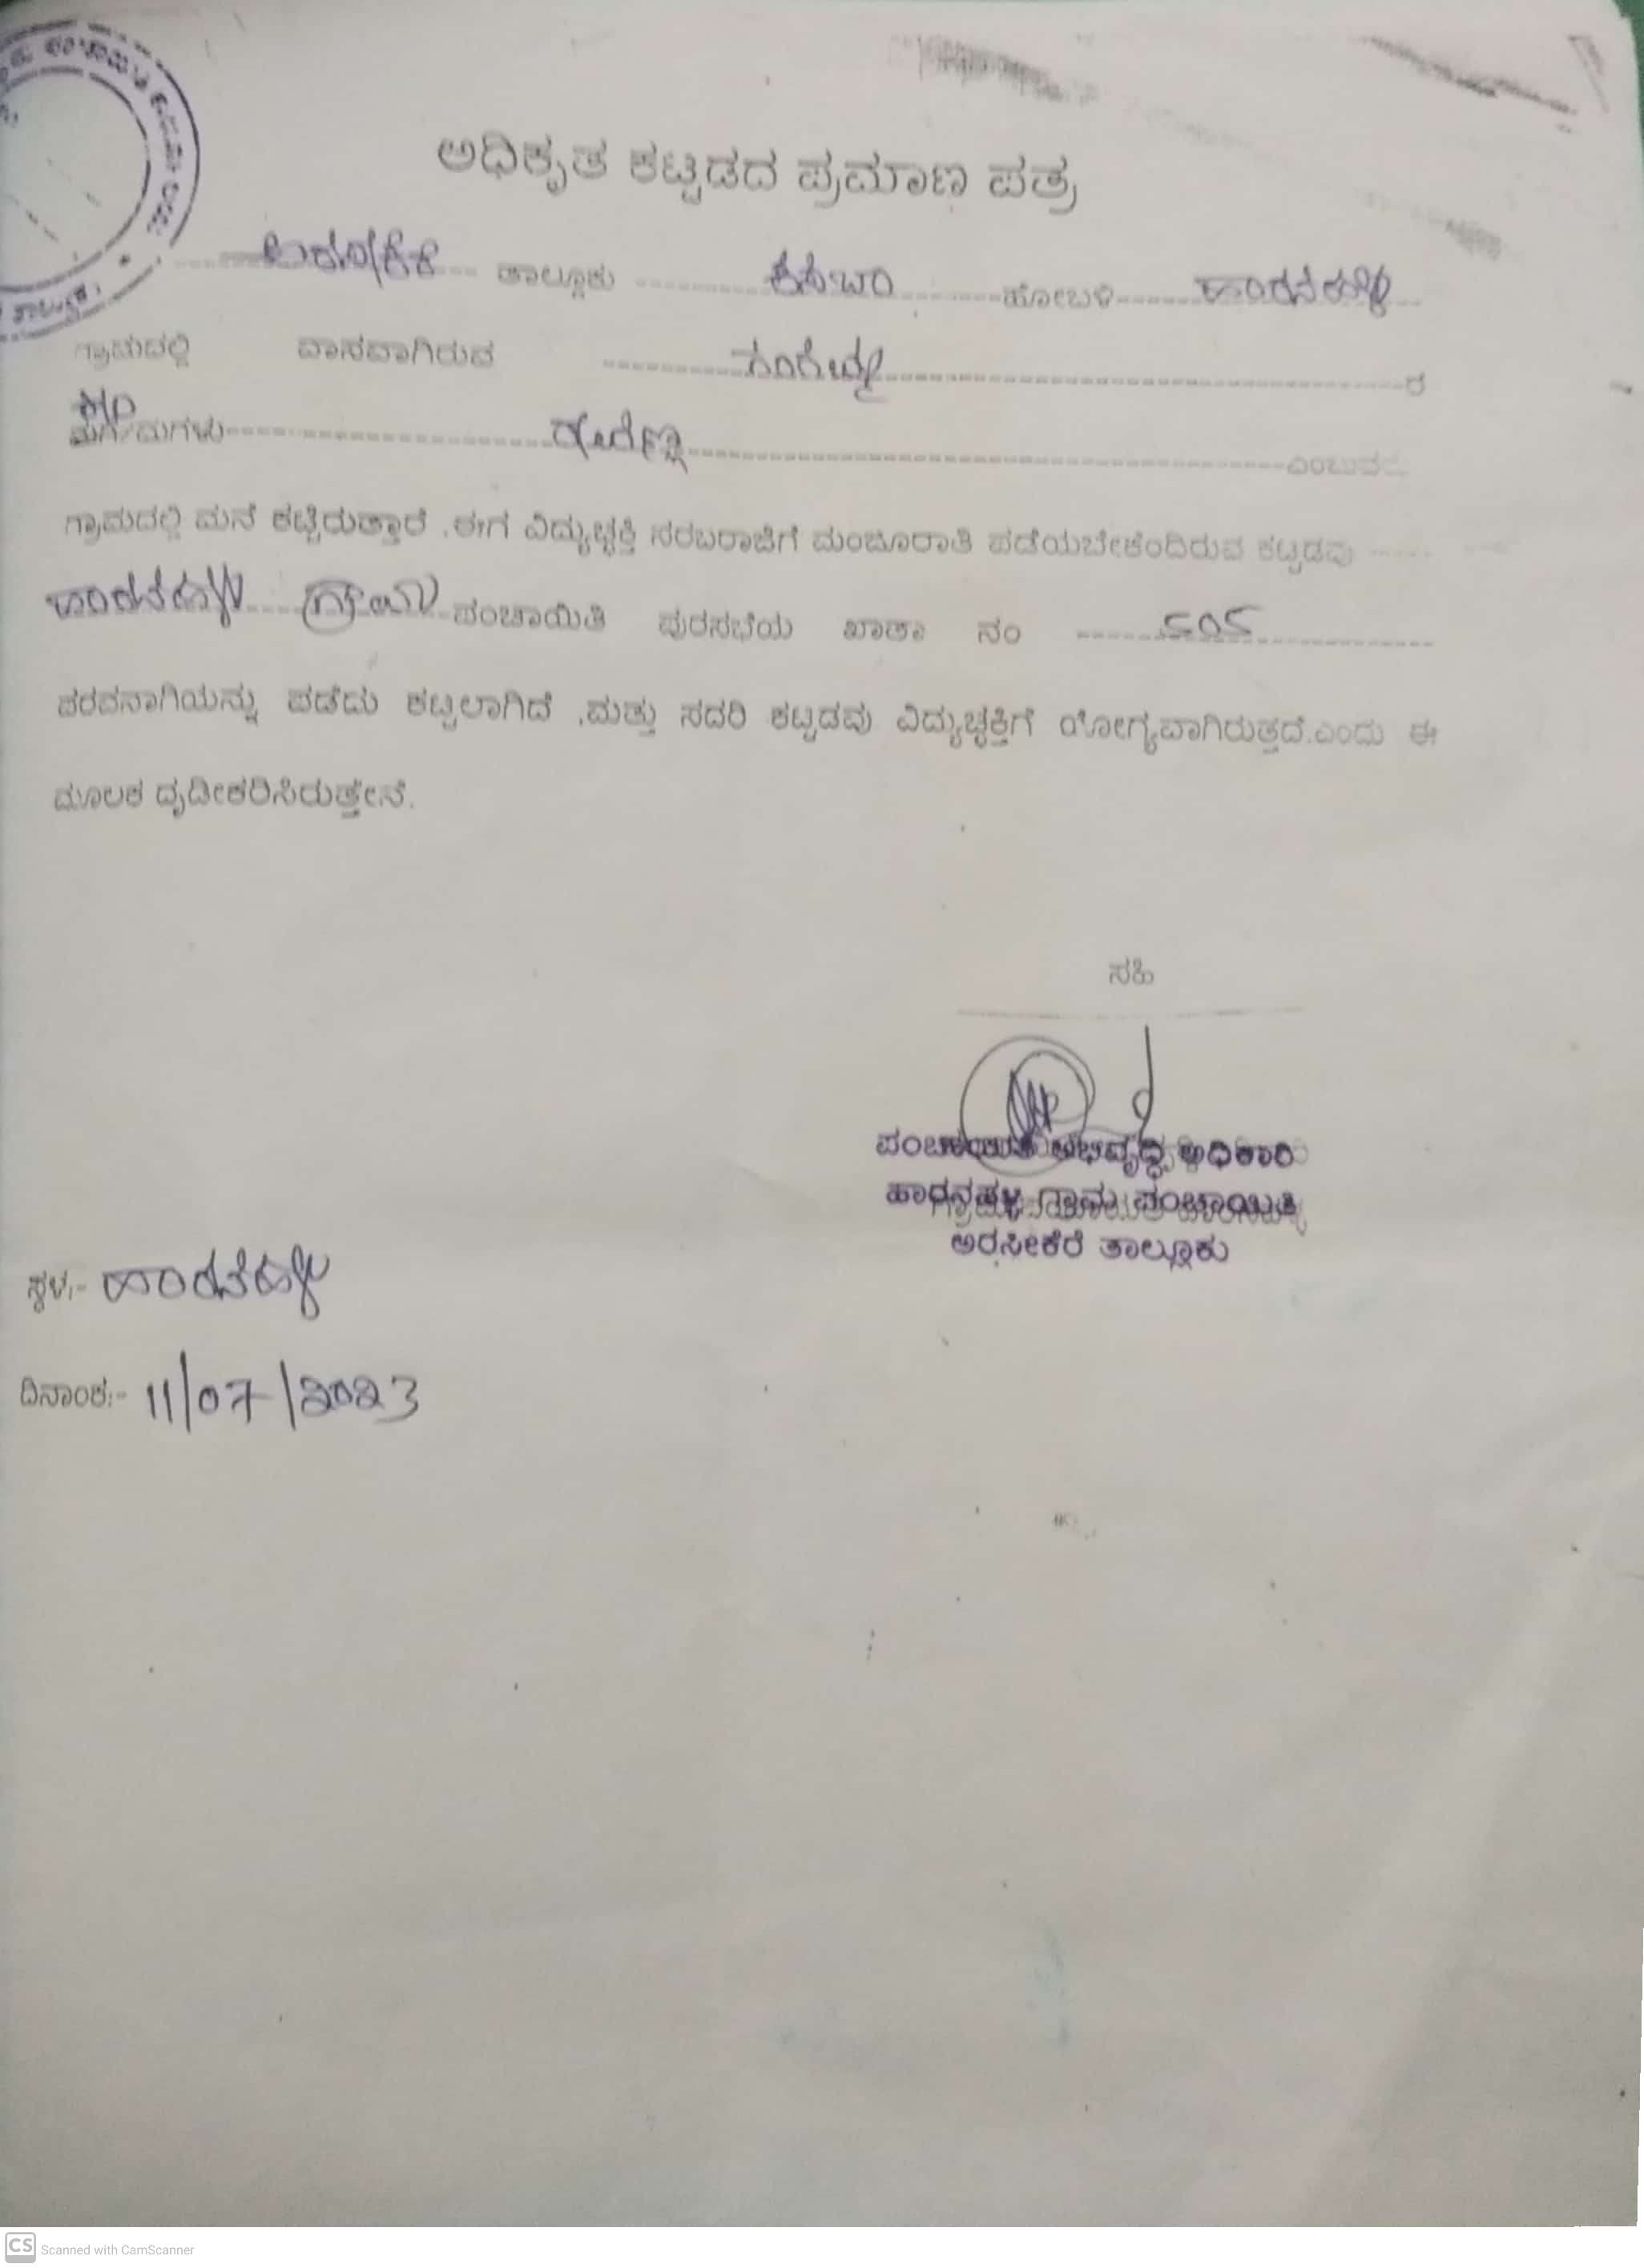 ಅಧಿಕೃತ ಕಟ್ಟಡದ ಪ್ರಮಾಣ ಪತ್ರ
ಅರಸೀಕೆರೆ ತಾಲ್ಲೂಕು ಕಸಬಾ ಹೋಬಳಿ ಹಾರನಹಳ್ಳಿ
ಗ್ರಾಮದಲ್ಲಿ ವಾಸವಾಗಿರುವ ಗಂಗಮ್ಮ ರ
ಮಗ/ಮಗಳು ಎಂಬುವರು
ಗ್ರಾಮದಲ್ಲಿ ಮನೆ ಕಟ್ಟಿರುತ್ತಾರೆ .ಈಗ ವಿದ್ಯುಚ್ಛಕ್ತಿ ಸರಬರಾಜಿಗೆ ಮಂಜೂರಾತಿ ಪಡೆಯಬೇಕೆಂದಿರುವ ಕಟ್ಟಡವು
ಹಾರನಹಳ್ಳಿ ಗ್ರಾಮ ಪಂಚಾಯಿತಿ ಪುರಸಭೆಯ ಖಾತಾ ನಂ
ಪರವನಾಗಿಯನ್ನು ಪಡೆದು ಕಟ್ಟಲಾಗಿದೆ .ಮತ್ತು ಸದರಿ ಕಟ್ಟಡವು ವಿದ್ಯುಚ್ಛಕ್ತಿಗೆ ಯೋಗ್ಯವಾಗಿರುತ್ತದೆ.ಎಂದು ಈ
ಮೂಲಕ ದೃಡೀಕರಿಸಿರುತ್ತೇನೆ.
ಸಹಿ
ಪಂಚಾಯಿತಿ ಅಭಿವೃದ್ಧಿ ಅಧಿಕಾರಿ
ಹಾರನಹಳ್ಳಿ ಗ್ರಾಮ ಪಂಚಾಯಿತಿ
ಅರಸೀಕೆರೆ ತಾಲ್ಲೂಕು
ಸ್ಥಳ:- ಹಾರನಹಳ್ಳಿ
ದಿನಾಂಕ:- 11/07/2023
CS Scanned with CamScanner